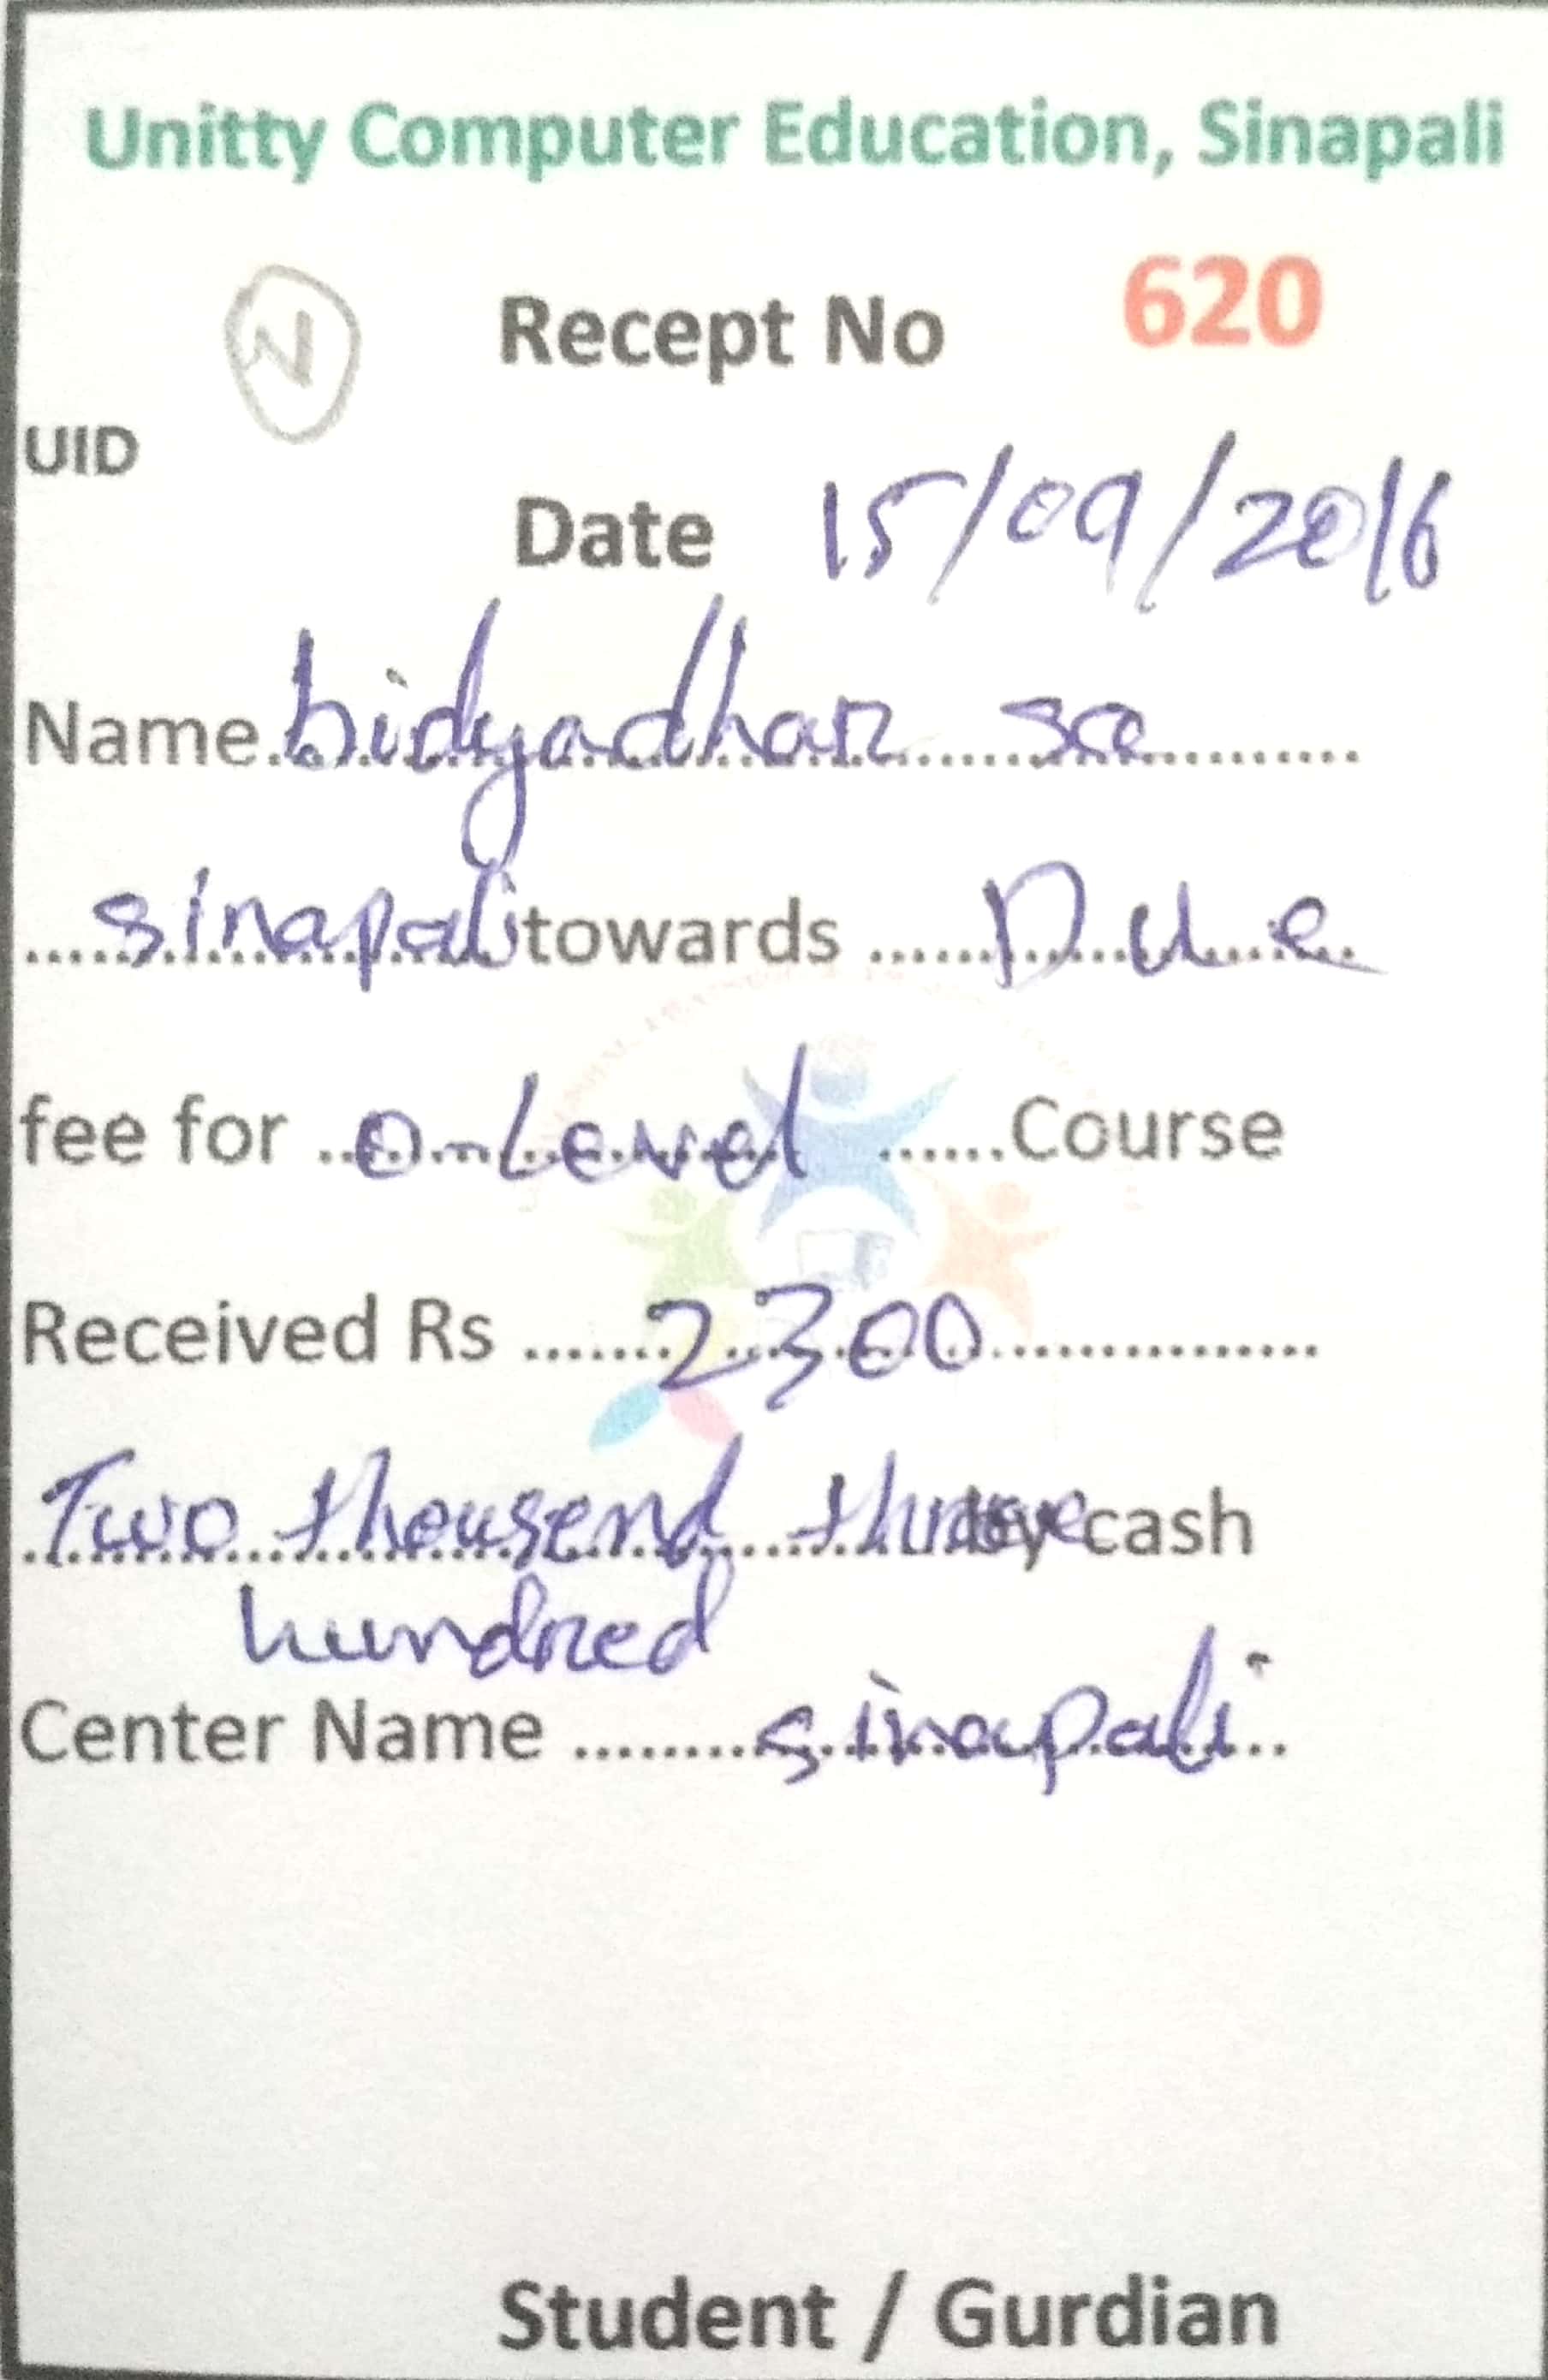 Unitty Computer Education, Sinapali
Recept No 620
UID
Date 15/09/2016
Name bidyadhar sa
sinapali towards Due
fee for O-Level Course
Received Rs 2300
Two thousend three by cash
hundred
Center Name sinapali
Student / Gurdian